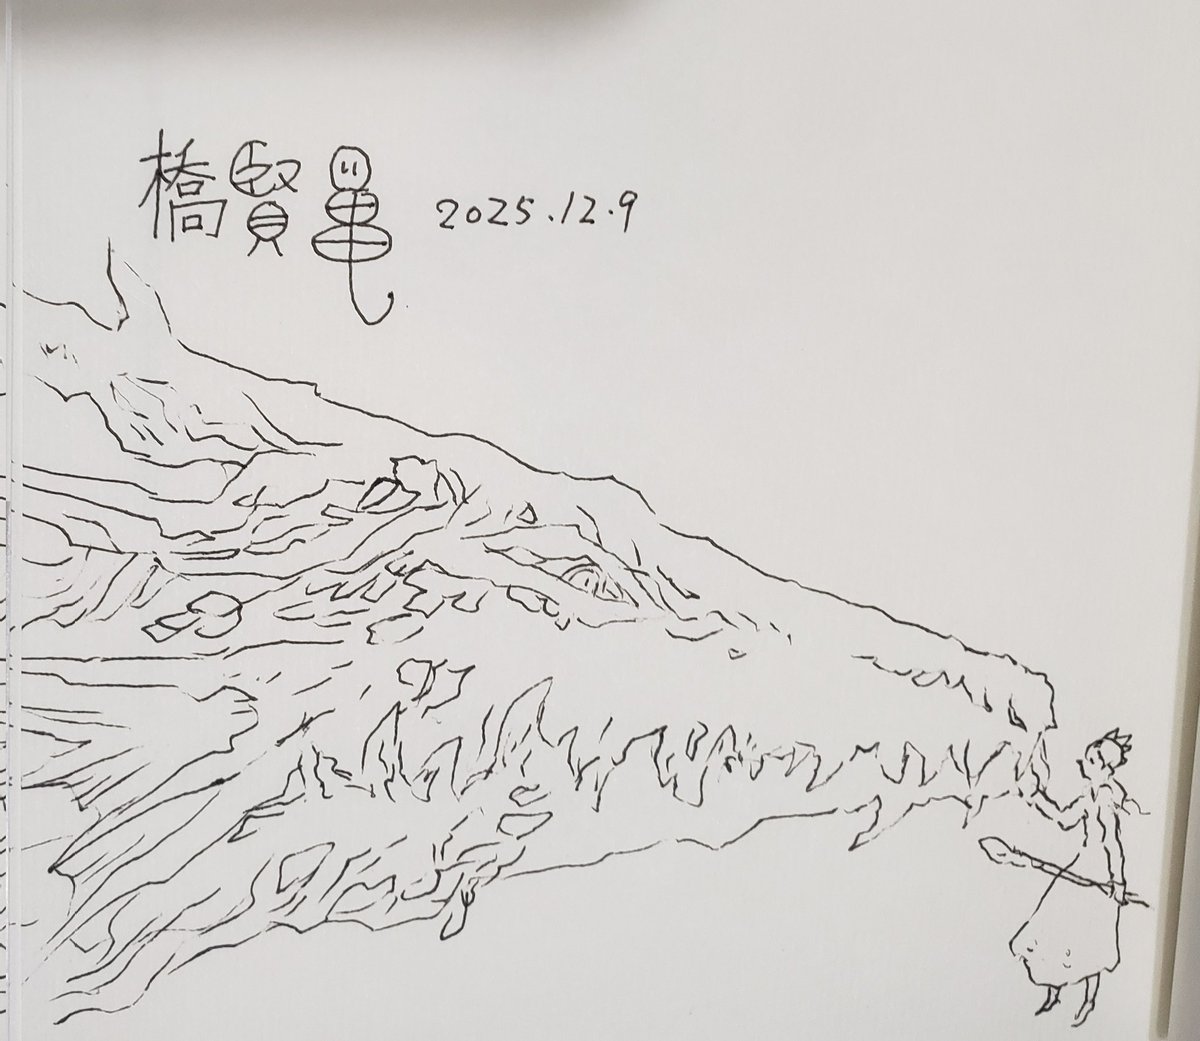 橋賢亀 2025.12.9